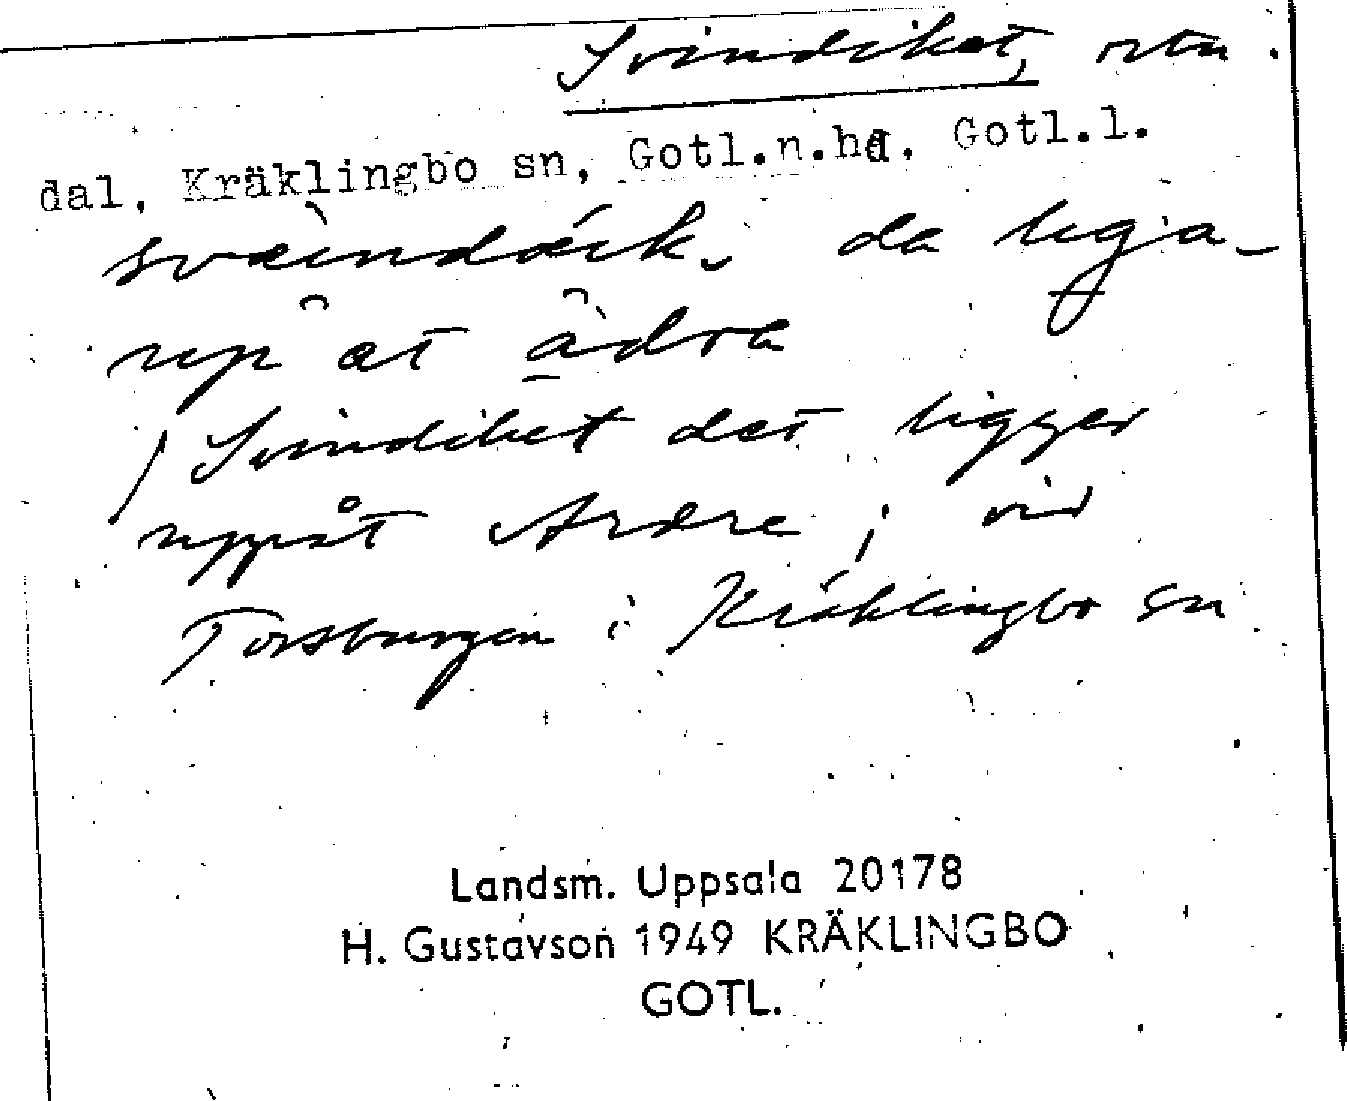 Svindiket, ortn.
dal, Kräklingbo sn, Gotl.n.hd, Gotl.l.
sväindäik. da liga-
up at ādra
/Svindiket det ligger
uppåt Ardre; vid
Torsburgen i Kräklingbo sn
Landsm. Uppsala 20178
H. Gustavson 1949 KRÄKLINGBO
GOTL.